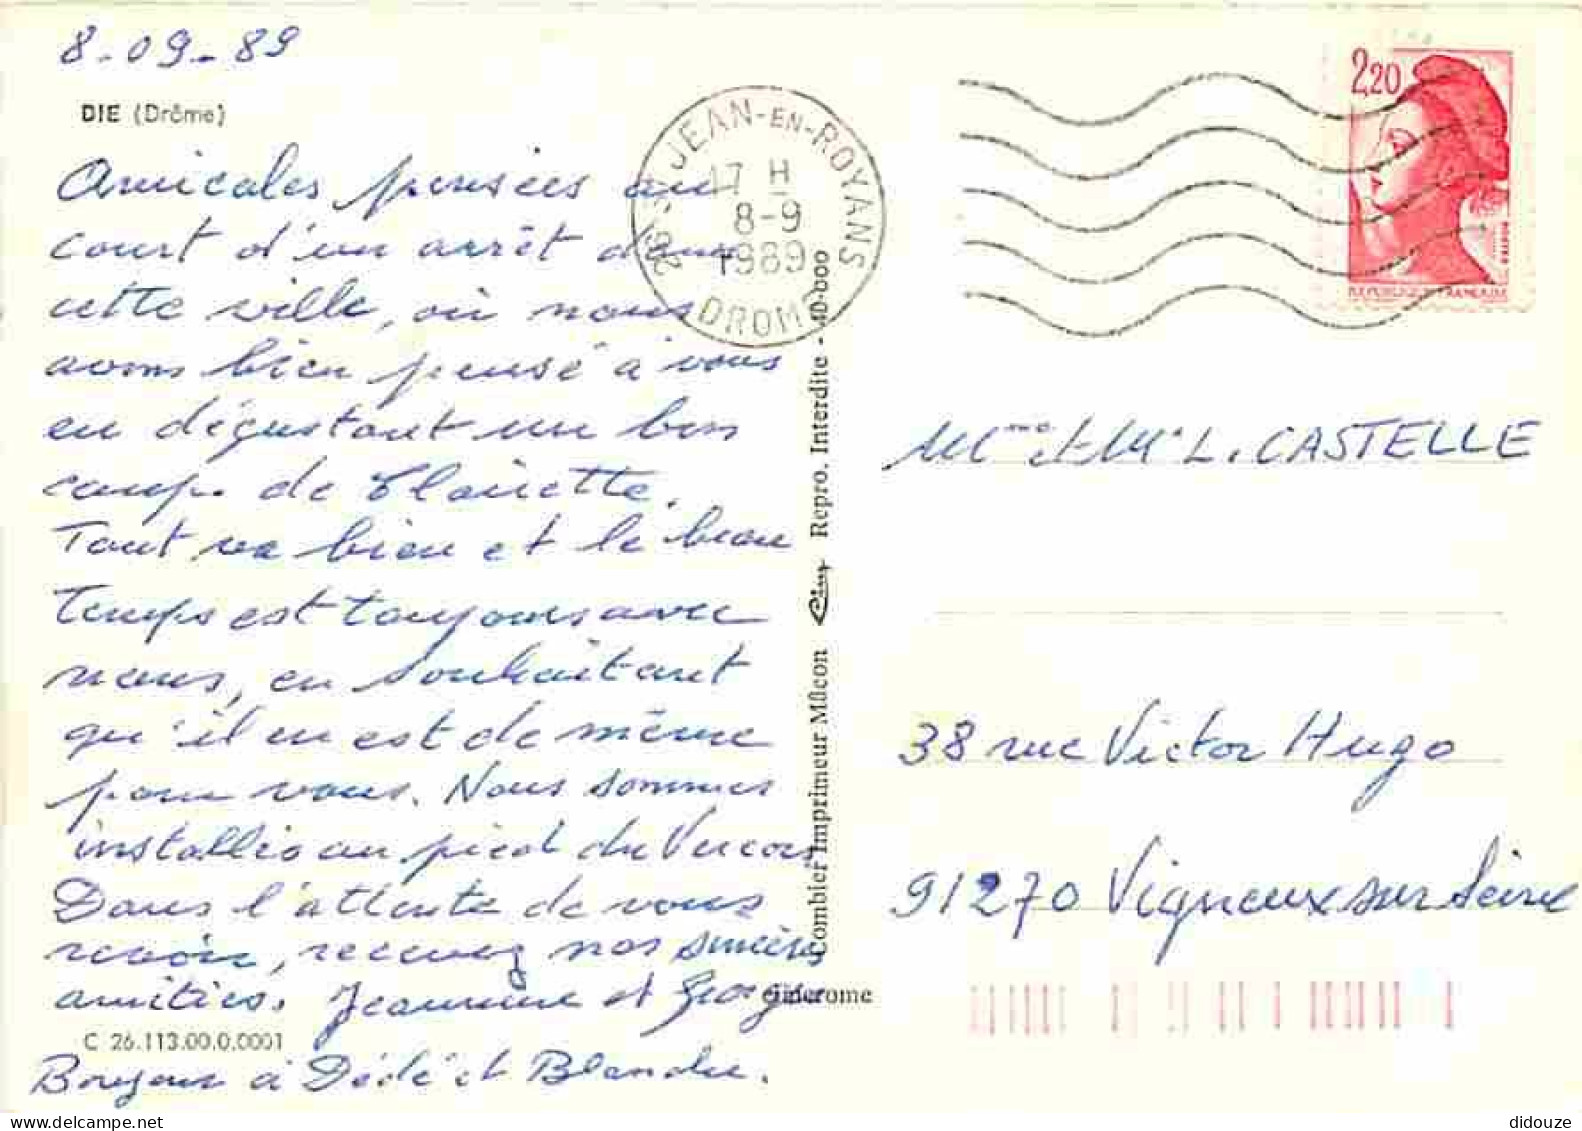 8-09-89
DIE (Drôme)
Amicales pensées au
court d'un arrêt dans
cette ville, où nous
avons bien pensé à vous
en dégustant un bon
coup de Clairette.
Tout va bien et le beau
temps est toujours avec
nous, en souhaitant
qu'il en est de même
pour vous. Nous sommes
installés au pied du Vercors
Dans l'attente de vous
revoir, recevez nos sincères
amitiés. Jeannine et Georges
C 26.113.00.0.0001
Bonjour à Dédé et Blanche.
26 ST JEAN-EN-ROYANS
17 H
8-9
1989
DROME
Combier Imprimeur Mâcon Cim Repro. Interdite - 40-000
2,20
REPUBLIQUE FRANCAISE
Mme et Mr L. CASTELLE
38 rue Victor Hugo
91270 Vigneux sur Seine
didouze